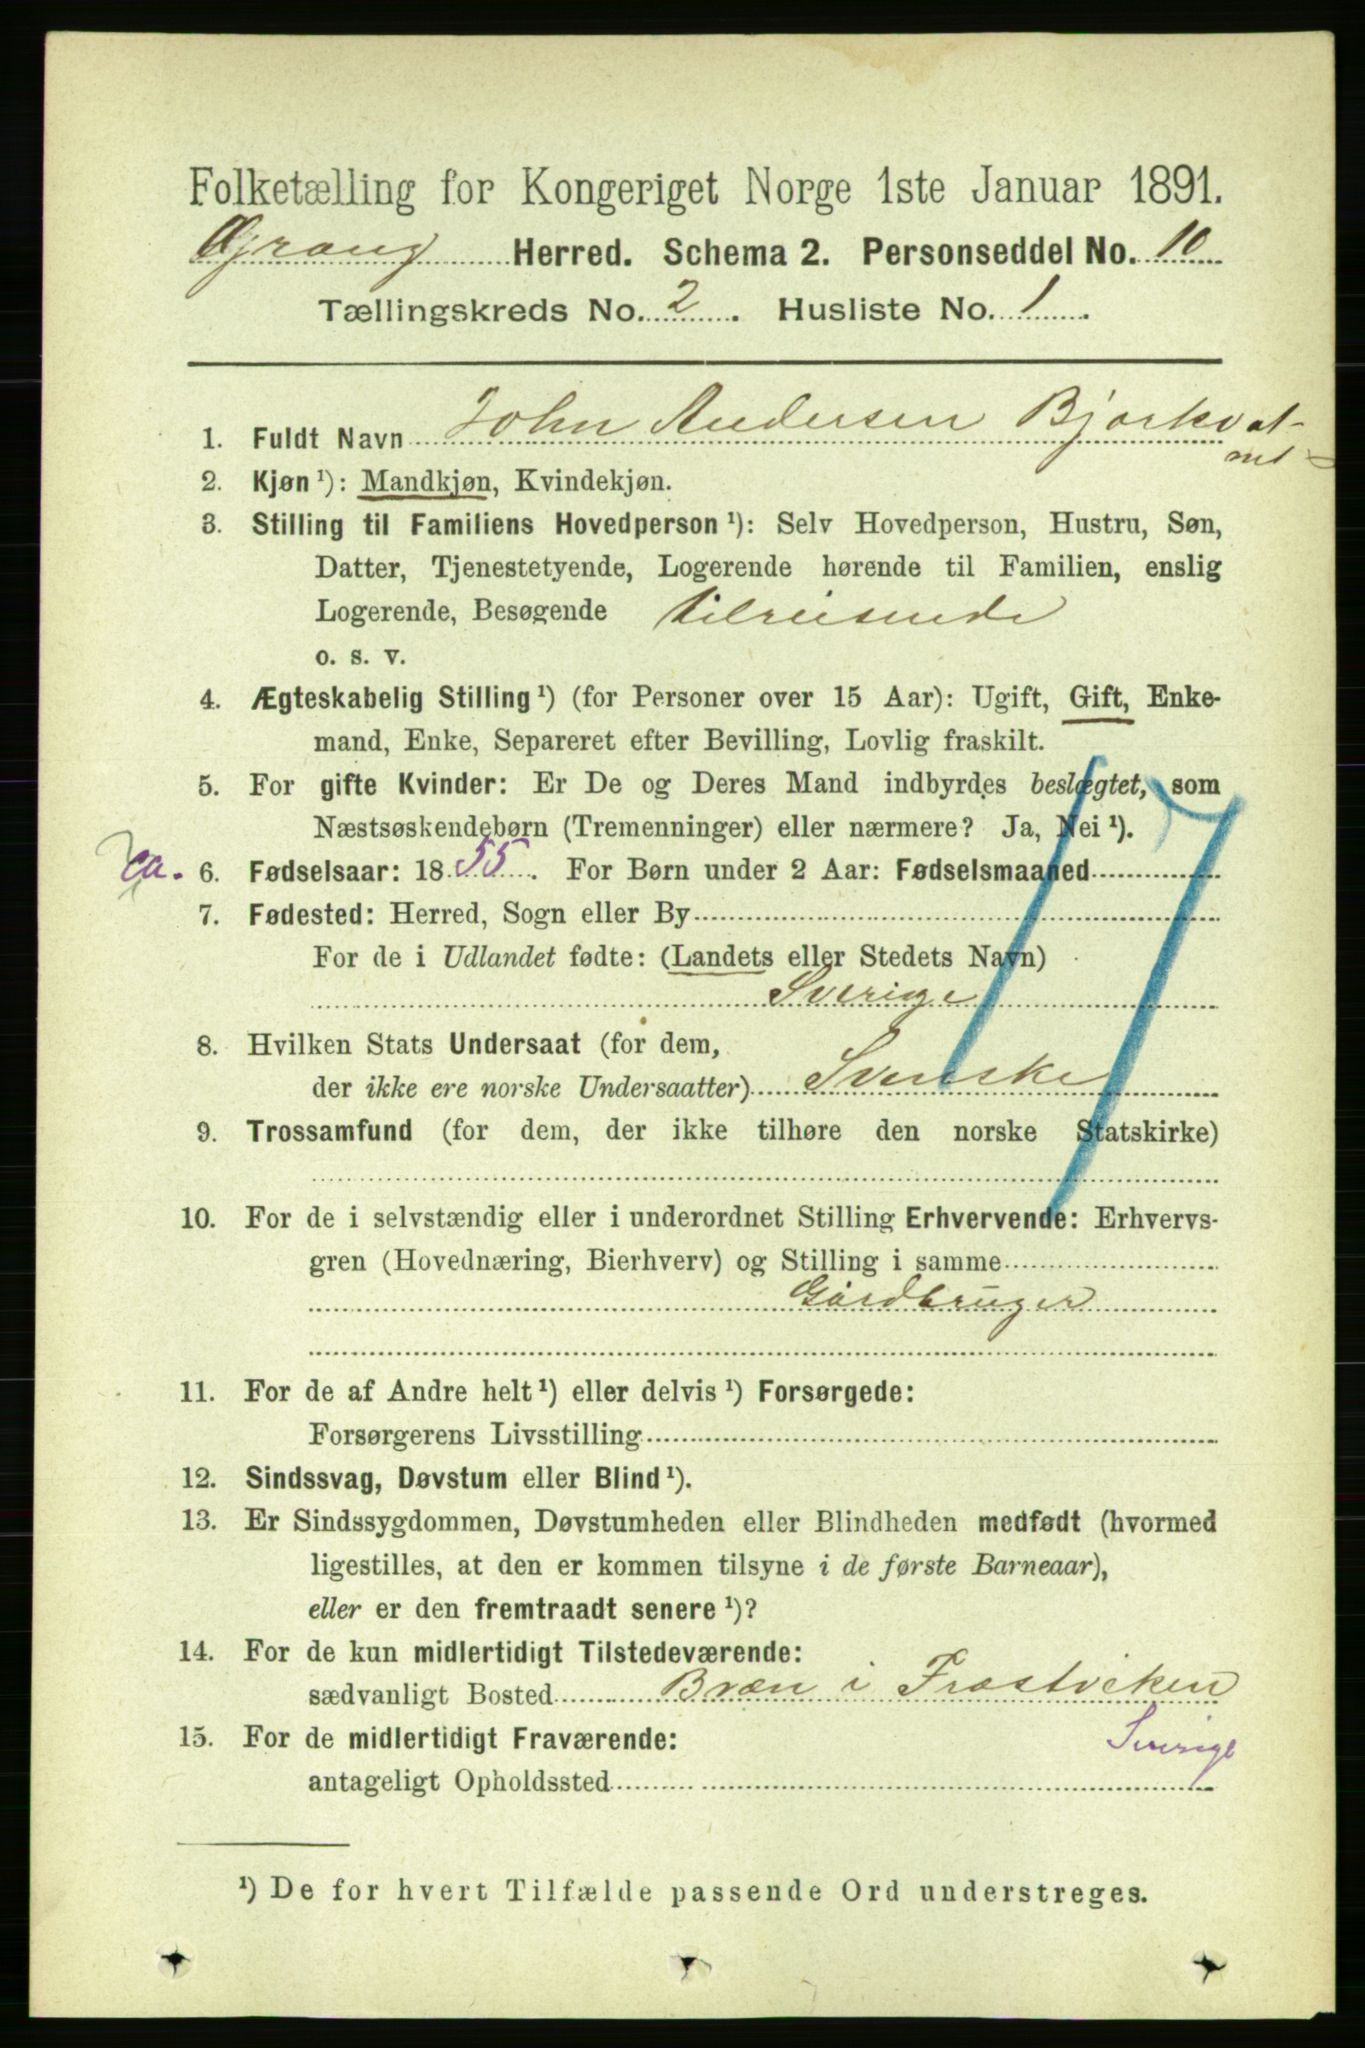 Folketælling for Kongeriget Norge 1ste Januar 1891.
Grong Herred. Schema 2. Personseddel No. 10
Tællingskreds No. 2. Husliste No. 1.
1. Fuldt Navn John Andersen Bjorkvat-
net
2. Kjøn ¹): Mandkjøn, Kvindekjøn.
3. Stilling til Familiens Hovedperson ¹): Selv Hovedperson, Hustru, Søn,
Datter, Tjenestetyende, Logerende hørende til Familien, enslig
Logerende, Besøgende tilreisende
o. s. v.
4. Ægteskabelig Stilling ¹) (for Personer over 15 Aar): Ugift, Gift, Enke-
mand, Enke, Separeret efter Bevilling, Lovlig fraskilt.
5. For gifte Kvinder: Er De og Deres Mand indbyrdes beslægtet, som
Næstsøskendebørn (Tremenninger) eller nærmere? Ja, Nei ¹).
ca. 6. Fødselsaar: 1855. For Børn under 2 Aar: Fødselsmaaned
7. Fødested: Herred, Sogn eller By
For de i Udlandet fødte: (Landets eller Stedets Navn)
Sverige
8. Hvilken Stats Undersaat (for dem,
der ikke ere norske Undersaatter) Svenske
9. Trossamfund (for dem, der ikke tilhøre den norske Statskirke)
10. For de i selvstændig eller i underordnet Stilling Erhvervende: Erhvervs-
gren (Hovednæring, Bierhverv) og Stilling i samme
Gårdbruger
11. For de af Andre helt ¹) eller delvis ¹) Forsørgede:
Forsørgerens Livsstilling
12. Sindssvag, Døvstum eller Blind ¹).
13. Er Sindssygdommen, Døvstumheden eller Blindheden medfødt (hvormed
ligestilles, at den er kommen tilsyne i de første Barneaar),
eller er den fremtraadt senere ¹)?
14. For de kun midlertidigt Tilstedeværende:
sædvanligt Bosted Bræn i Frostviken
Sverige
15. For de midlertidigt Fraværende:
antageligt Opholdssted
¹) De for hvert Tilfælde passende Ord understreges.